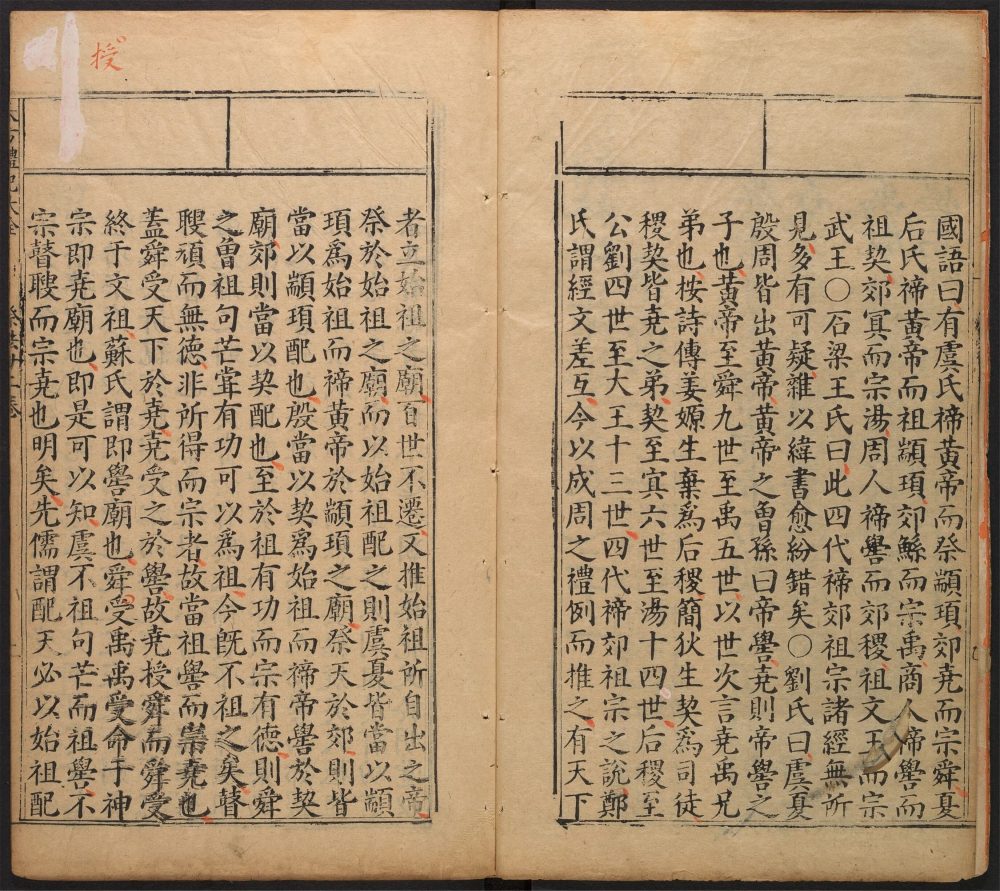 國語曰有虞氏禘黃帝而祭顓頊郊堯而宗舜夏
后氏禘黃帝而祖顓頊郊鯀而宗禹商人禘嚳而
祖契郊冥而宗湯周人禘嚳而郊稷祖文王而宗
武王〇石梁王氏曰此四代禘郊祖宗諸經無所
見多有可疑雜以緯書愈紛錯矣〇劉氏曰虞夏
殷周皆出黃帝黃帝之曾孫曰帝嚳堯則帝嚳之
子也黃帝至舜九世至禹五世以世次言堯禹兄
弟也按詩傳姜嫄生棄爲后稷簡狄生契爲司徒
稷契皆堯之弟契至㝠六世至湯十四世后稷至
公劉四世至大王十三世四代禘郊祖宗之說鄭
氏謂經文差互今以成周之禮例而推之有天下
者立始祖之廟百世不遷又推始祖所自出之帝
祭於始祖之廟而以始祖配之則虞夏皆當以顓
頊爲始祖而禘黃帝於顓頊之廟祭天於郊則皆
當以顓頊配也殷當以契爲始祖而禘帝嚳於契
廟郊則當以契配也至於祖有功而宗有德則舜
之曾祖句芒甞有功可以爲祖今旣不祖之矣瞽
瞍頑而無德非所得而宗者故當祖嚳而崇堯也
蓋舜受天下於堯堯受之於嚳故堯授舜而舜受
終于文祖蘇氏謂即嚳廟也舜受禹禹受命于神
宗即堯廟也即是可以知虞不祖句芒而祖嚳不
宗瞽瞍而宗堯也明矣先儒謂配天必以始祖配
授